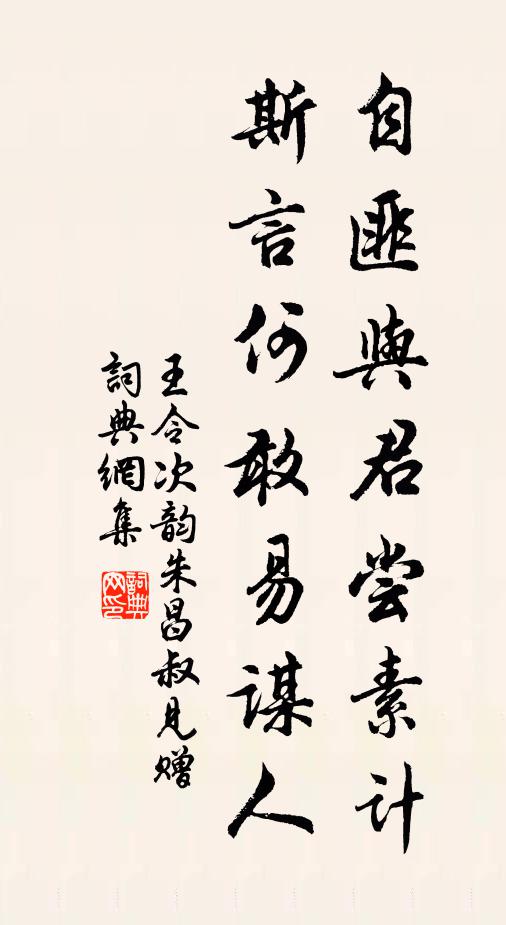 自匪與君尝素计
斯言何敢易谋人
王令次韵朱昌叔见赠
詞典網集
詞典网印